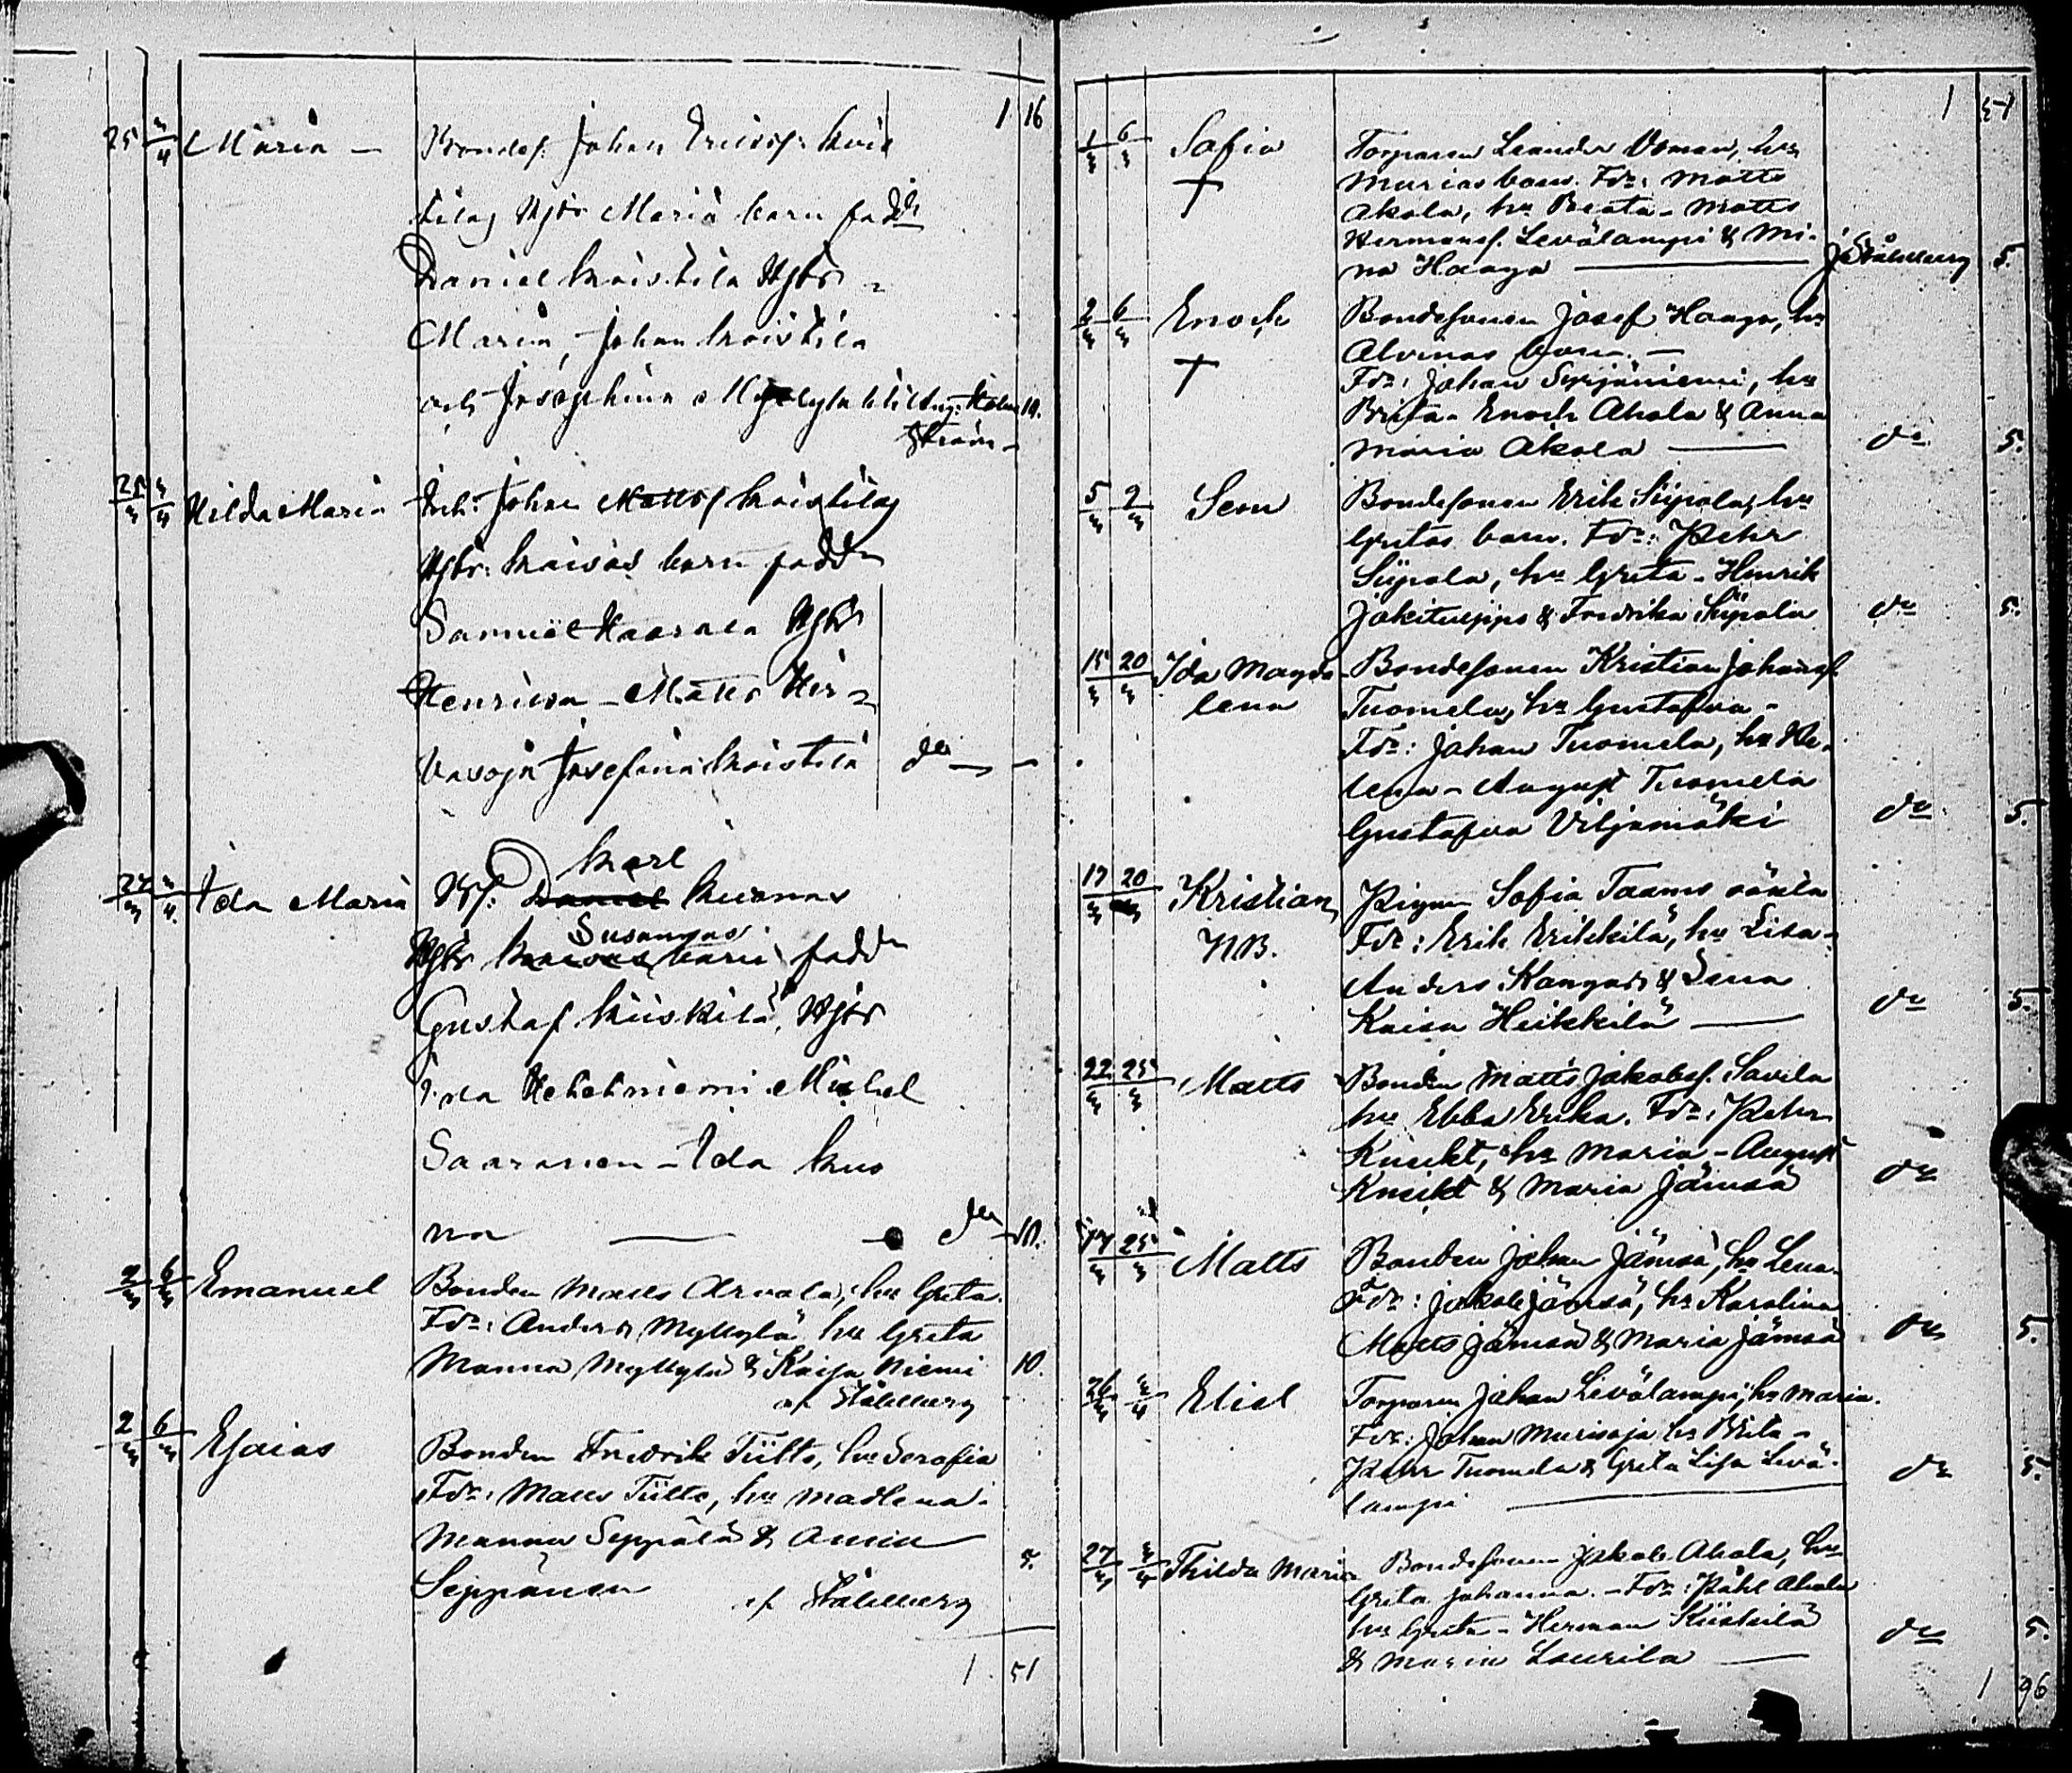 1 16
25 4 Maria — Bondes. Johan Ericss: Kois
tilas Hjtr Maria barn fadd
Daniel Koistila Hjtr
Maria, Johan Koistila
och Josephina Myllylä
ström
25/3 4 Hilda Maria Inh: Johan Mattss Koistilas
Hjtr: Kaisas barn fadd
Samuel Haarala Hjtr
Henrica - Matts Hir-
vasoja Josefina Koistila do —
Karl
27/3 4 Ida Maria Bs: Daniel Kuonas
Susannas
Hjtr Kaisas barn fadd
Gustaf Kiiskilä, Hjtr
Michel
Saaranen - Ida Kuo
na — do 10.
2/3 6/3 Emanuel Bonden Matts Arvola, hu Greta.
Fdr: Anders Myllylä hu Greta
Manna Myllylä & Kaisa Niemi 10.
af Ståhlberg
2/3 6/3 Esaias Bonden Fredrik Tiitto, hu Serafia
Fdr: Matts Tiitto, hu Madlena -
Manna Seppälä & Anna 5.
Seppänen af Ståhlberg
1 51
1 51
1/3 6/3 Sofia Torparen Leander Oman, hus
Marias barn. Fdr: Matts
Akola, hu Beata - Matts
Hermanss. Levälampi & Mi-
na Haaga — J Ståhlberg 5.
2/3 6/3 Enoch Bondesonen Josef Haaga, hu
Alvinas barn. —
Fdr: Johan Syrjäniemi, hu
Brita - Enoch Ahola & Anna
Maria Akola — do 5.
5/3 9/3 Sem Bondesonen Erik Siipola, hu
Gretas barn. Fdr: Pehr
Siipola, hu Greta - Henrik
Jokitulppo & Fredrika Siipola do 5.
15/3 20/3 Ida Magda Bondesonen Kristian Johanss.
lena Tuomela, hu Gustafva -
Fdr: Johan Tuomela, hu He-
lena - August Tuomela
Gustafva Viljamäki do 5.
17/3 20/3 Kristian Pigan Sofia Taams oäkta
NB. Fdr: Erik Erikkilä, hu Lisa -
Anders Kangas & Lena
Kaisa Heikkilä — do 5.
22/3 25/3 Matts Bonden Matts Jakobss. Savela
hu Ebba Erika. Fdr: Pehr
Kneckt, hu Maria - August
Kneckt & Maria Jämsä do
17/3 25/3 Matts Bonden Johan Jämsä, hu Lena.
Fdr: Jakob Jämsä, hu Karolina
Matts Jämsä & Maria Jämsä do 5.
26/3 4 Eliel Torparen Johan Levälampi, hu Maria.
Fdr: Johan Murisoja hu Brita -
Pehr Tuomela & Greta Lisa Levä-
lampi — do 5.
27/3 4 Thilda Maria Bondesonen Jakob Ahola, hu
Greta Johanna. - Fdr: Påhl Ahola
hu Greta - Herman Kiiskilä
& Maria Laurila — do 5.
1 96